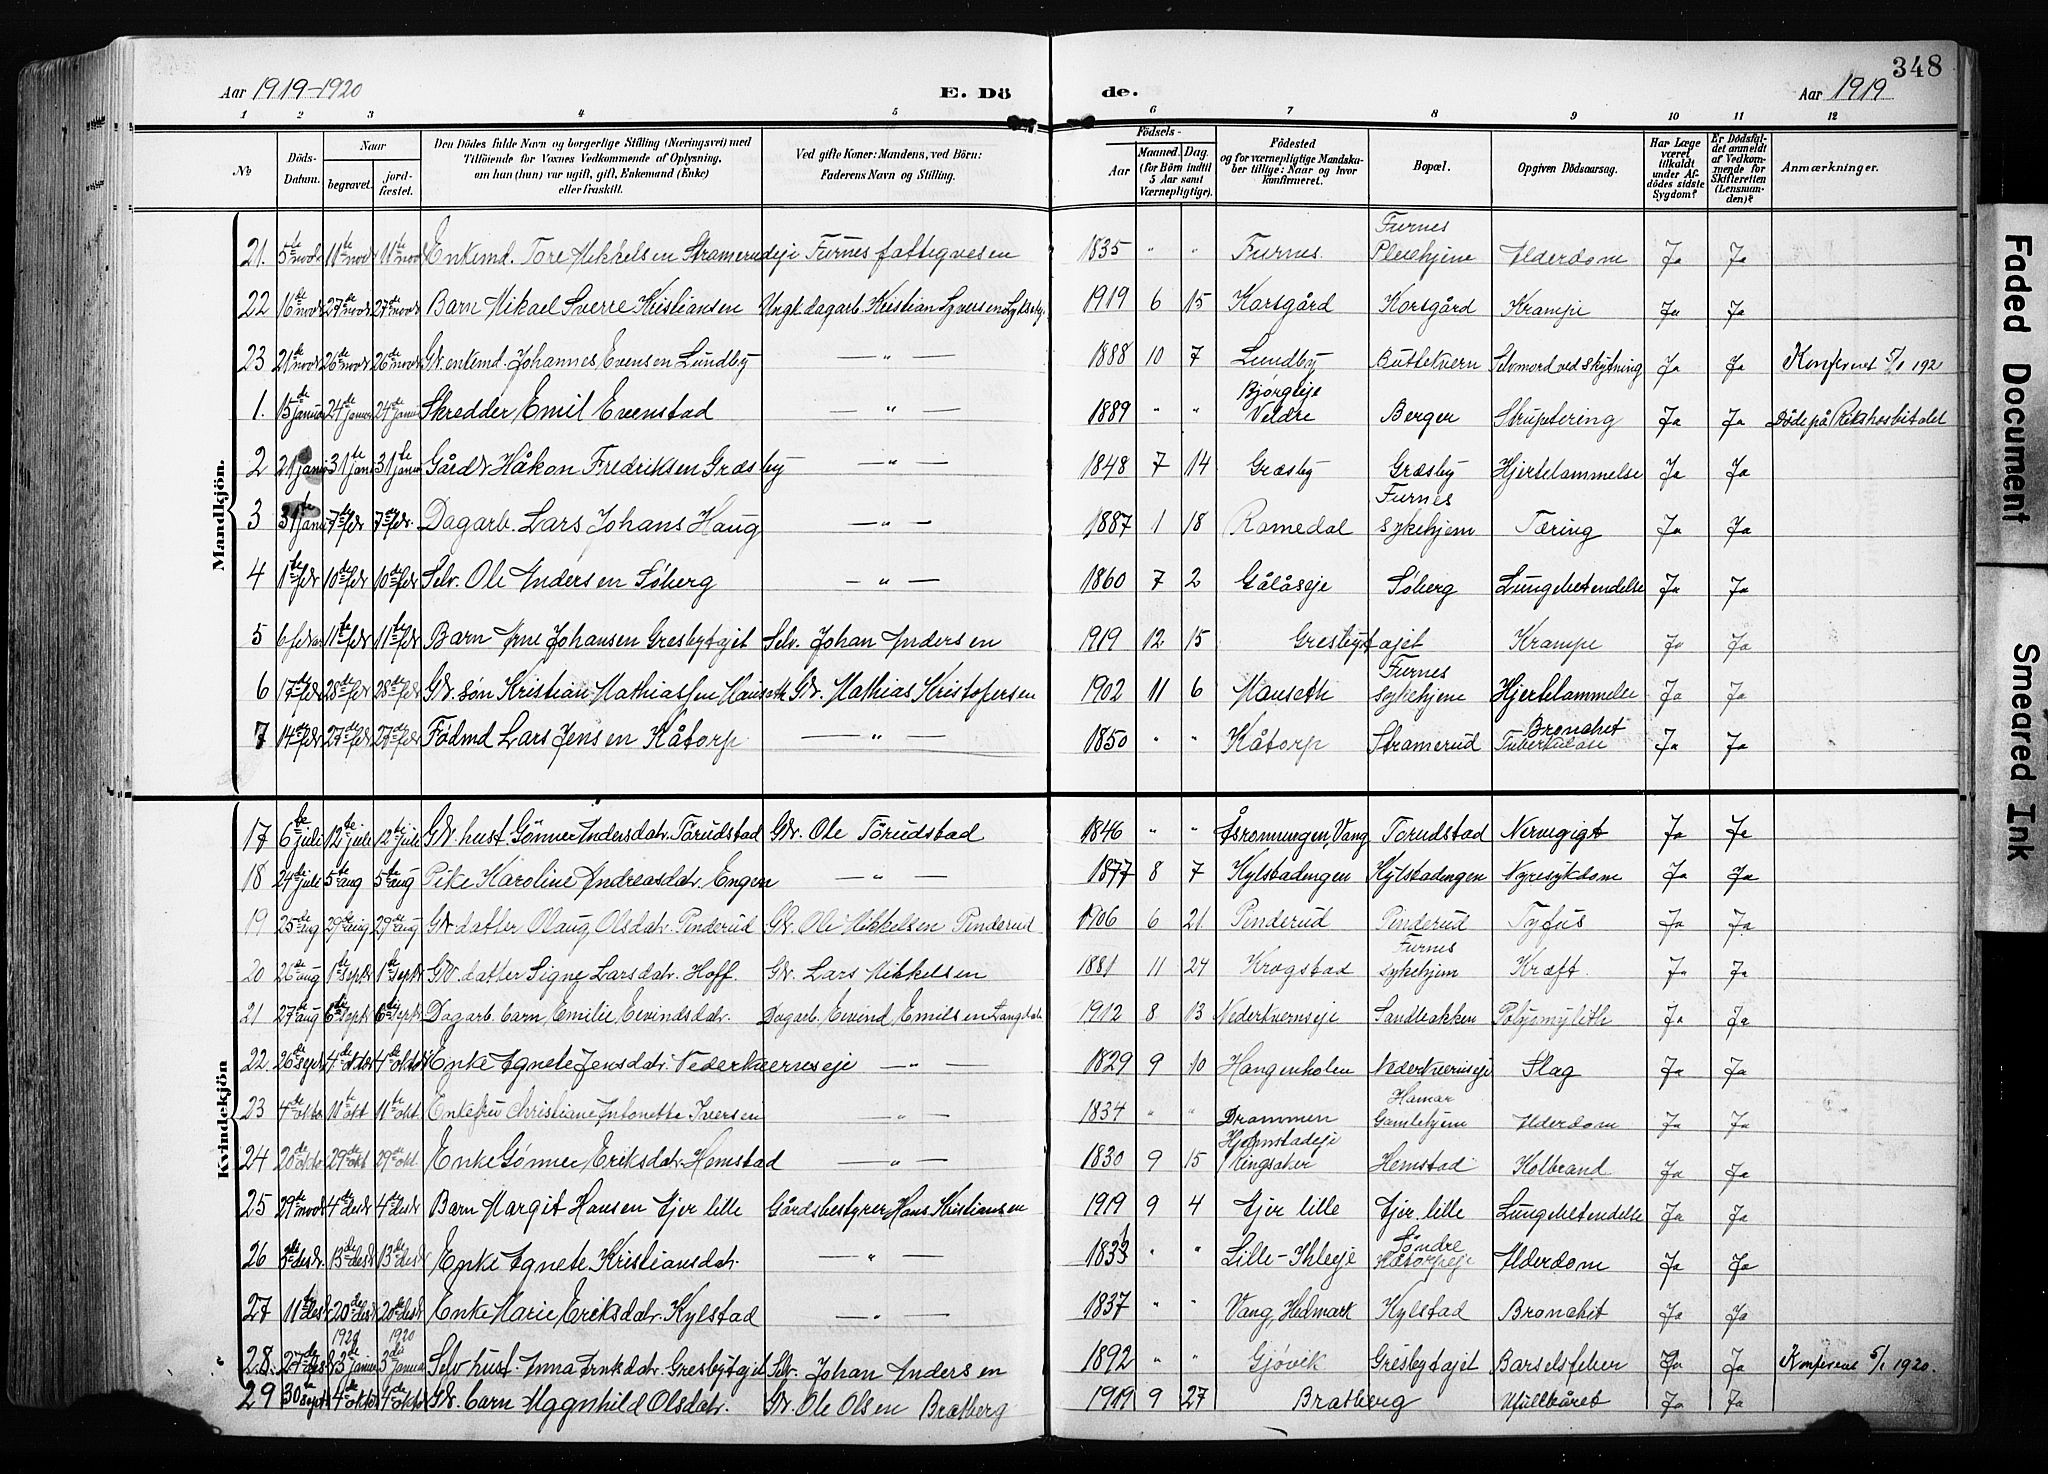 348
Aar 1919-1920 E. Dö de. Aar 1919
1 2 3 4 5 6 7 8 9 10 11 12
№ Döds-Datum. Naar begravet. jord-fæstet. Den Dödes fulde Navn og borgerlige Stilling (Næringsvei) med Tilföiende for Voxnes Vedkommende af Oplysning, om han (hun) var ugift, gift, Enkemand (Enke) eller fraskilt. Ved gifte Koner: Mandens, ved Börn: Faderens Navn og Stilling. Födsels- Aar Maaned. Dag. (for Börn indtil 5 Aar samt Værnepligtige). Födested og for værnepligtige Mandskaber tillige: Naar og hvor konfirmeret. Bopæl. Opgiven Dödsaarsag. Har Læge været tilkaldt under Afdödes sidste Sygdom? Er Dödsfaldet anmeldt af Vedkommende for Skifteretten (Lensmanden)? Anmærkninger.
Mandkjön.
21. 5te novbr 11te nov 11te nov Enkemd. Tore Mikkelsen Stramerudeje Furnes fattigvesen 1835 " " Furnes. Furnes Pleiehjem Alderdom Ja Ja
22 16de novbr 27de novbr 27de novbr Barn Mikael Sverre Kristiansen Ungk. dagarb. Kristian Syversen 1919 6 15 Korsgård Korsgård Krampe Ja Ja
23 21de novbr 26de novbr 26de novbr Gbr. enkemd. Johannes Evensen Lundby — " — 1888 10 7 Lundby Buttekvern Selvmord ved skytning Ja Ja Konfereret 5/1 192
1. 15de januar 24de januar 24de januar Skredder Emil Evenstad — " — 1889 " " Bjørgeeje Veldre Berger Strupetering Ja Ja Döde på Rikshospitalet
2 21 januar 31te jan 31te januar Gårdbr Håkon Fredriksen Græsby — " — 1848 7 14 Græsby Græsby Hjertelammelse Ja Ja
3 31te januar 7de febr 7de febr. Dagarb. Lars Johans Haug — " — 1887 1 18 Romedal Furnes sykehjem Tæring Ja Ja
4 1te febr 10de febr 10de febr Selv. Ole Andersen Søberg — " — 1860 7 2 Gålåseje Søberg Lungebetendelse Ja Ja
5 6 febr 11te febr 11te febr Barn Arne Johansen Gresbytajet Selv. Johan Andersen 1919 12 15 Gresbytajet Krampe Ja Ja
6 17de febr 28de febr 28de febr Gbr. søn Kristian Mathiassen Hauseth Gbr. Mathias Kristofersen 1902 11 6 Hauseth Furnes sykehjem Hjertelammelse Ja Ja
7 14de febr 27de febr 27de febr Fødmd Lars Jensen Kåtorp — " — 1850 " " Kåtorp Stramerud Bronchit Tuberkulose Ja Ja
Kvindekjön
17 6te juli 12te juli 12te juli Gbr. hust. Gønner Andersdatr. Törudstad Gbr. Ole Törudstad 1846 " " Åsrønningen, Vang Torudstad Nervegigt Ja Ja
18 24de juli 5te aug 5te aug Pike Karoline Andreasdatr. Engen — " — 1877 8 7 Kylstadengen Kylstadengen Nyresykdom Ja Ja
19 25de aug 29de aug 29de aug Gbr datter Olaug Olsdatr. Pinderud Gbr. Ole Mikkelsen Pinderud 1906 6 21 Pinderud Pinderud Tyfus Ja Ja
20 26de aug 1te septr 1te septr Gbr. datter Signe Larsdatr. Hoff. Gbr. Lars Mikkelsen 1881 11 24 Krogstad Furnes sykehjem Kræft. Ja Ja
21 27de aug 6te septr 6te septr Dagarb. barn, Emilie Eivindsdatr. Dagarb. Eivind Emilsen 1912 8 13 Nederkvernseje Sandbakken Polyomylith Ja Ja
22. 26de septr 4de oktbr 4de oktbr Enke Agnete Jensdatr. Nederkverneseje — " — 1829 9 10 Hangenholen Nederkverneseje Slag Ja Ja
23 4de oktbr 11te okt 11te okt. Enkefru Christiane Antonette Iversen — " — 1834 " " Drammen Hamar Gamlehjem Alderdom Ja Ja
24 20de oktbr 29de okt 29de okt. Enke Gønner Eriksdatr. Hemstad — " — 1830 9 15 Hjelmstadeje Ringsaker Hemstad Kolbrand Ja Ja
25 29de novbr 4de desbr 4de desbr Barn Margit Hansen Ajer lille Gårdsbestyrer, Hans Kristiansen 1919 9 4 Ajer lille Ajer lille Lungebetendelse Ja Ja
26 desbr. 13de desbr 13de desbr Enke Agnete Kristiansdatr. — " — 1833 " " Lille-Ihleeje Søndre Kåtorpeje Alderdom Ja Ja
27 11te desbr 20de desbr 20de desbr Enke Marie Eriksdatr. Kylstad — " — 1837 " " Vang, Hedmark Kylstad Bronchit Ja Ja
28. 27de desbr 1920 3de januar 1920 3die januar Selv hust. Anna Arnksdatr. Gresbytajet Selv. Johan Andersen 1892 " " Gjøvik Gresbytajet Barselsfeber Ja Ja Konfereret 5/1 1920.
29 30te septr 4de oktbr 4de oktbr Gbr. barn Aggnhild Olsdatr. Gbr. Ole Olsen Bratberg 1919 9 27 Bratberg Ufullbåret Ja Ja
Faded Document
Smeared Ink